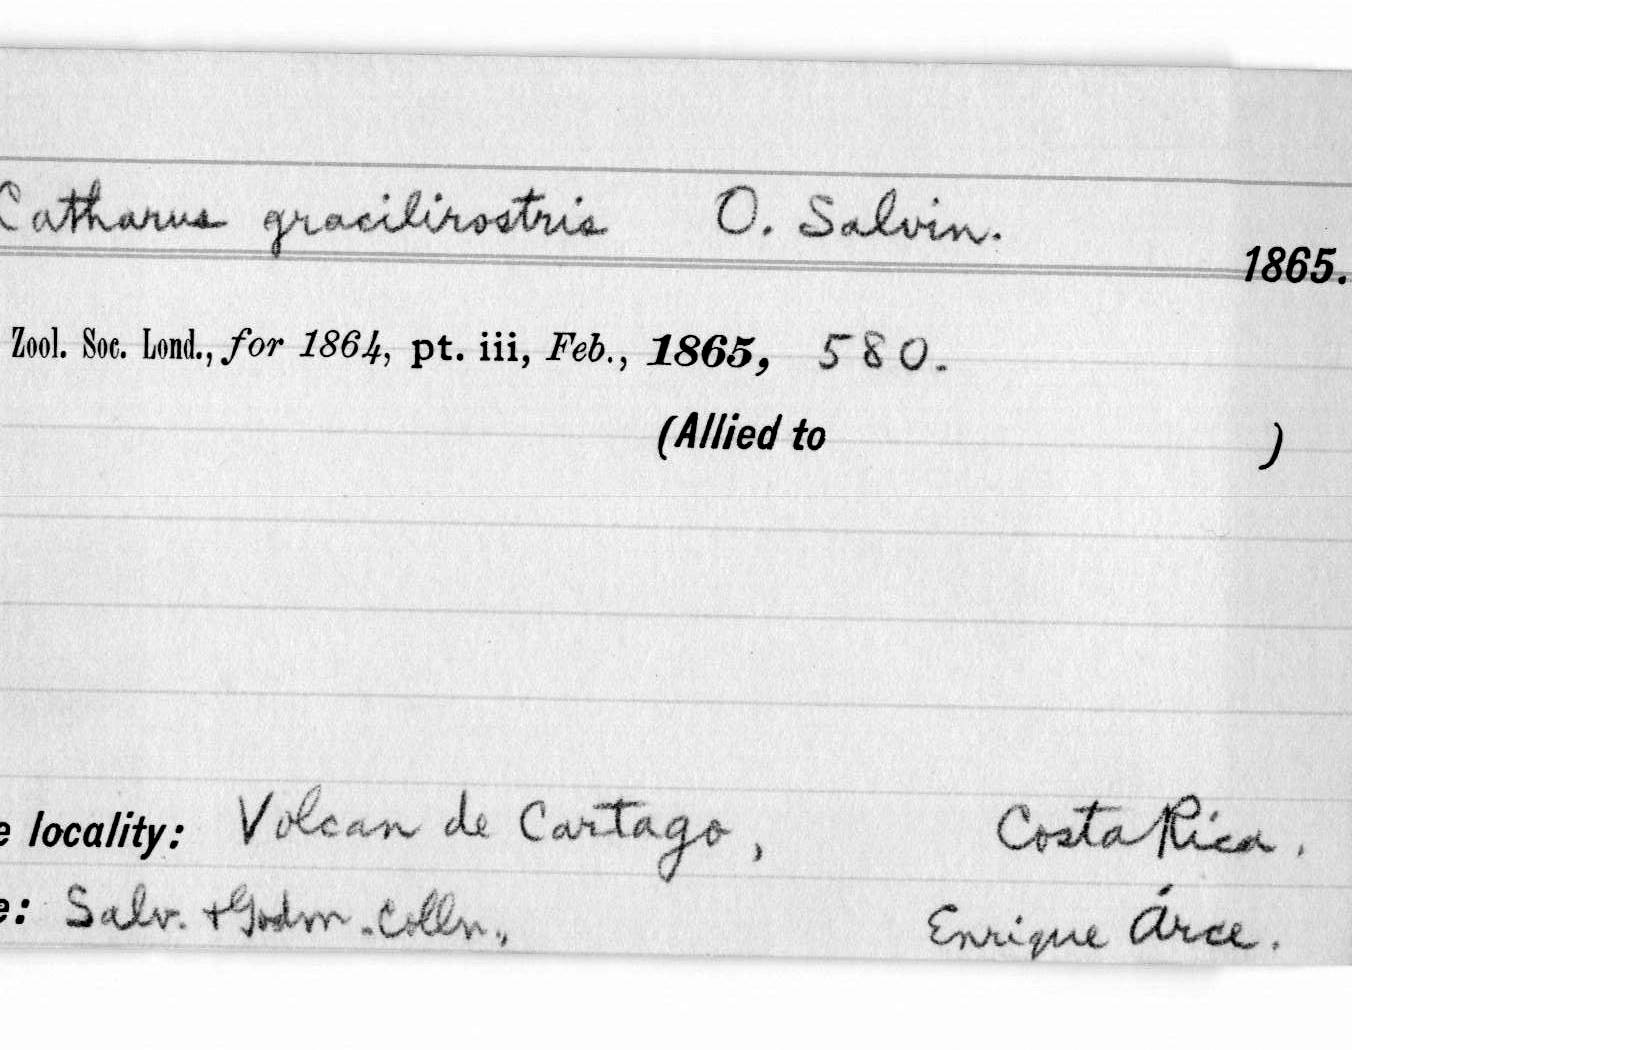 Catharus gracilirostris O. Salvin.
1865.
Zool. Soc. Lond., for 1864, pt. iii, Feb., 1865, 580.
(Allied to )
e locality: Volcan de Cartago, Costa Rica.
e: Salv. + Godm. Colln., Enrique Árce.